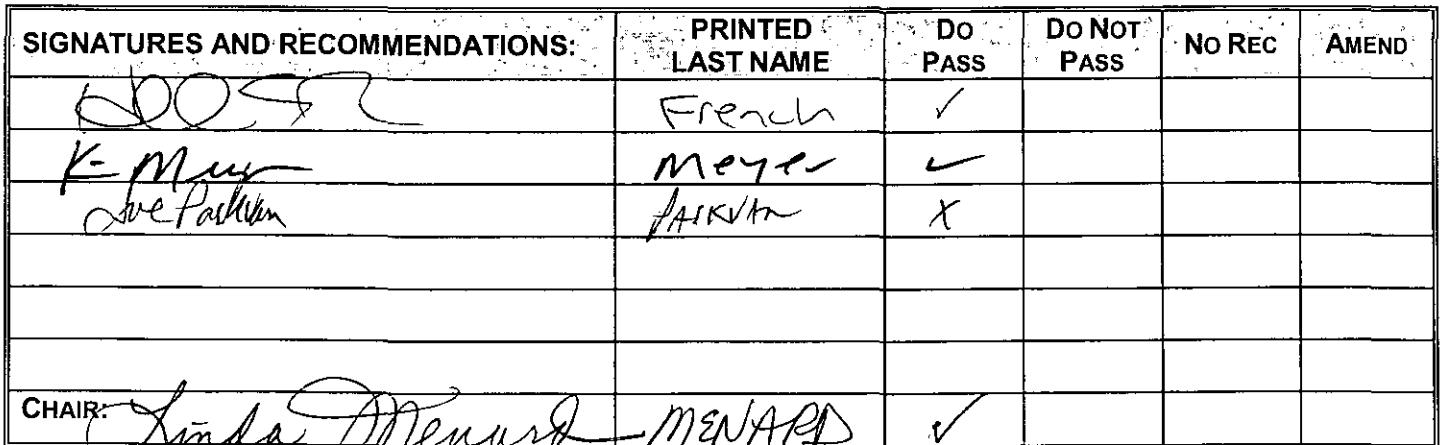 SIGNATURES AND RECOMMENDATIONS: PRINTED LAST NAME DO PASS DO NOT PASS NO REC AMEND
French ✓
K Meyer ✓
Parkvan X
CHAIR: Linda Menard MENARD ✓